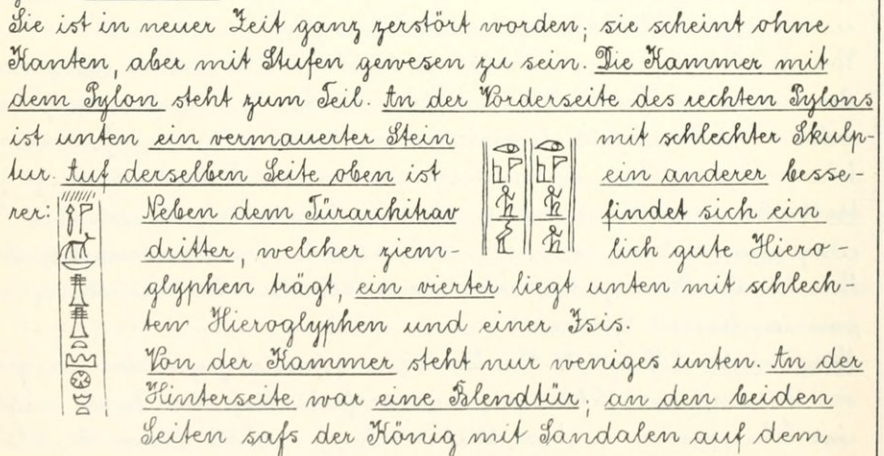 Sie ist in neuer Zeit ganz zerstört worden; sie scheint ohne
Kanten, aber mit Stufen gewesen zu sein. Die Kammer mit
dem Pylon steht zum Teil. An der Vorderseite des rechten Pylons
ist unten ein vermauerter Stein mit schlechter Skulp-
tur. Auf derselben Seite oben ist ein anderer besse-
rer: Neben dem Türarchitrav findet sich ein
dritter, welcher ziem- lich gute Hiero-
glyphen trägt, ein vierter liegt unten mit schlech-
ten Hieroglyphen und einer Isis.
Von der Kammer steht nur weniges unten. An der
Hinterseite war eine Blendtür; an den beiden
Seiten safs der König mit Sandalen auf dem